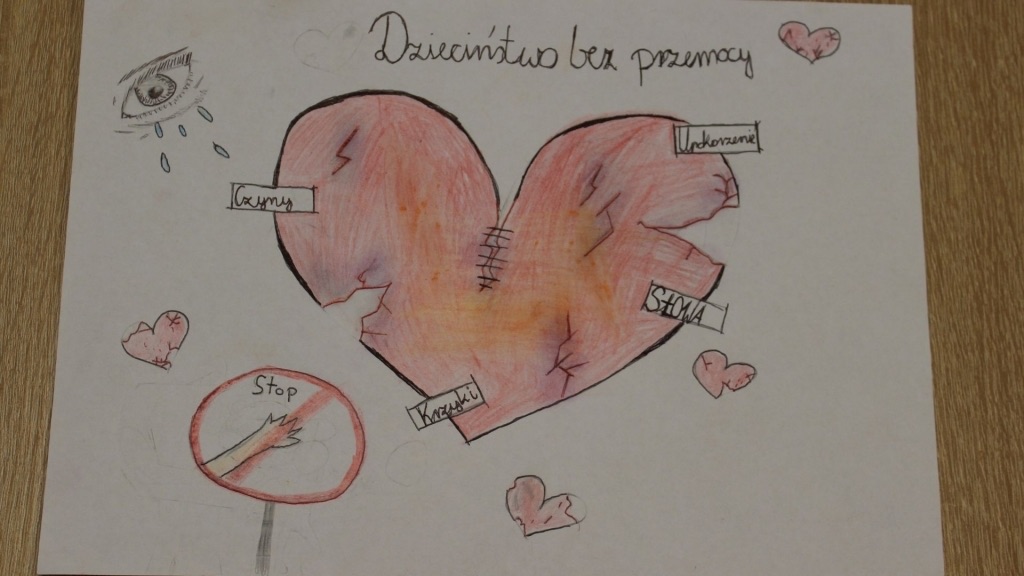 Dzieciństwo bez przemocy
Upokorzenie
Czyny
SŁOWA
Krzyki
Stop